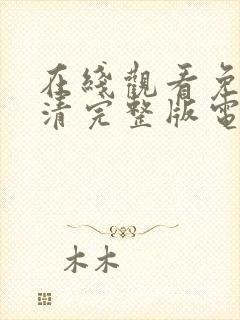 在綫觀看免
清完整版電
木木